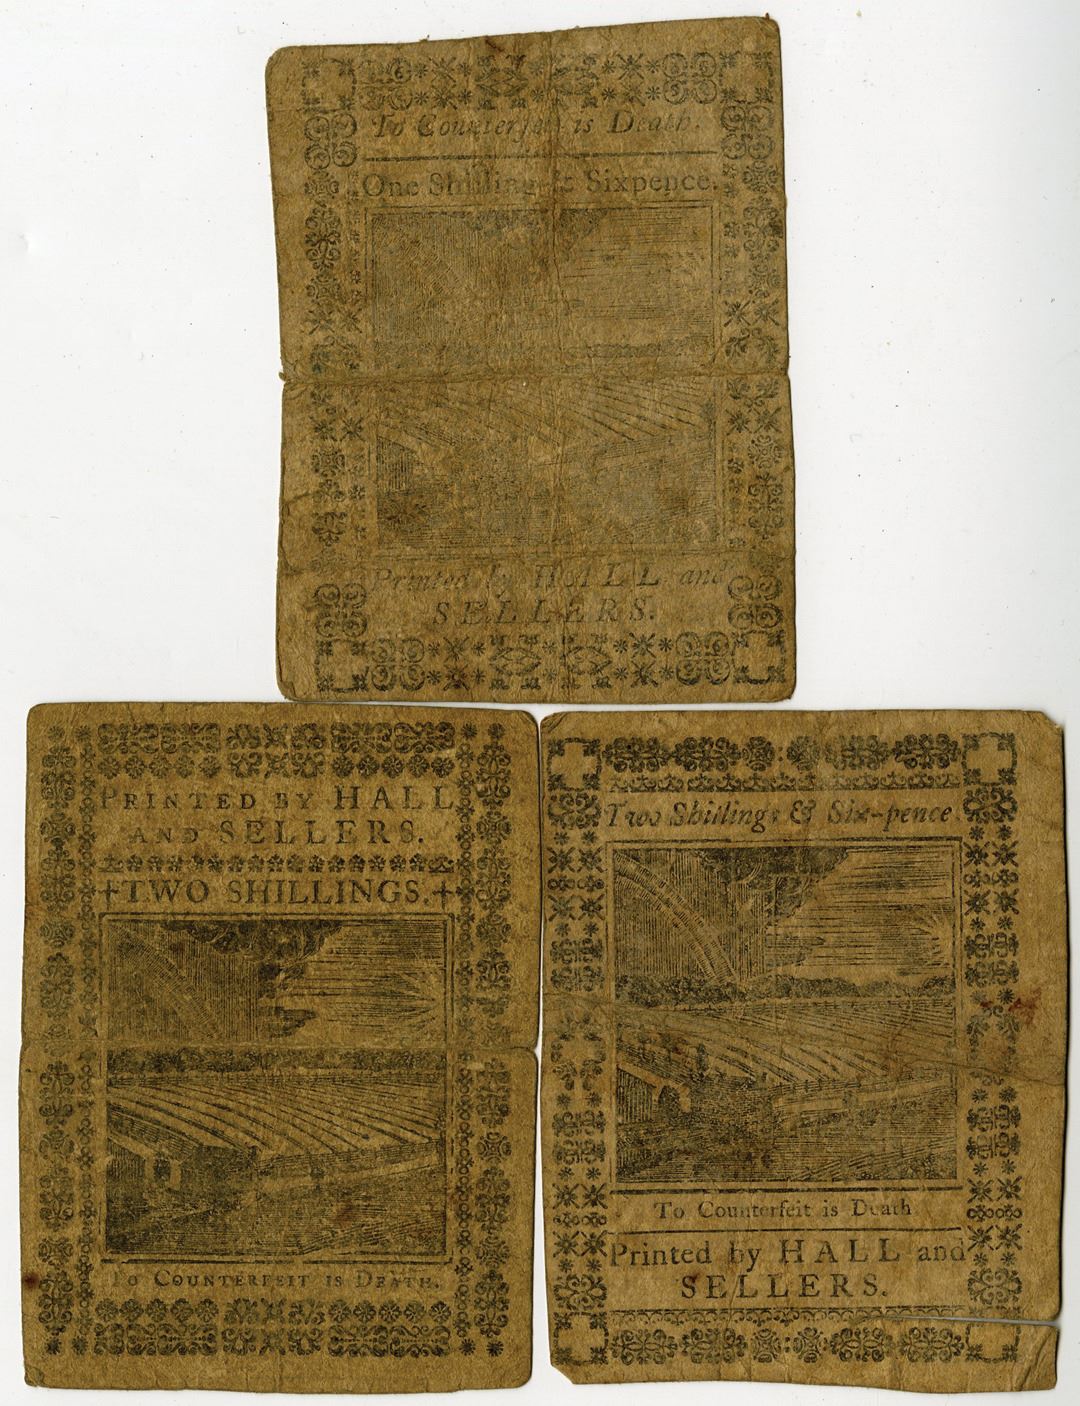 To Counterfeit is Death.
One Shilling & Sixpence.
Printed by HALL and
SELLERS.
PRINTED BY HALL
AND SELLERS.
TWO SHILLINGS.
TO COUNTERFEIT IS DEATH.
Two Shillings & Six-pence.
To Counterfeit is Death
Printed by HALL and
SELLERS.